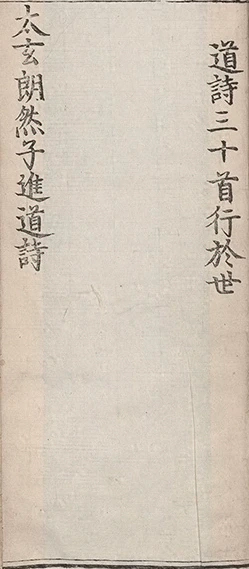 道詩三十首行於世
太玄朗然子進道詩